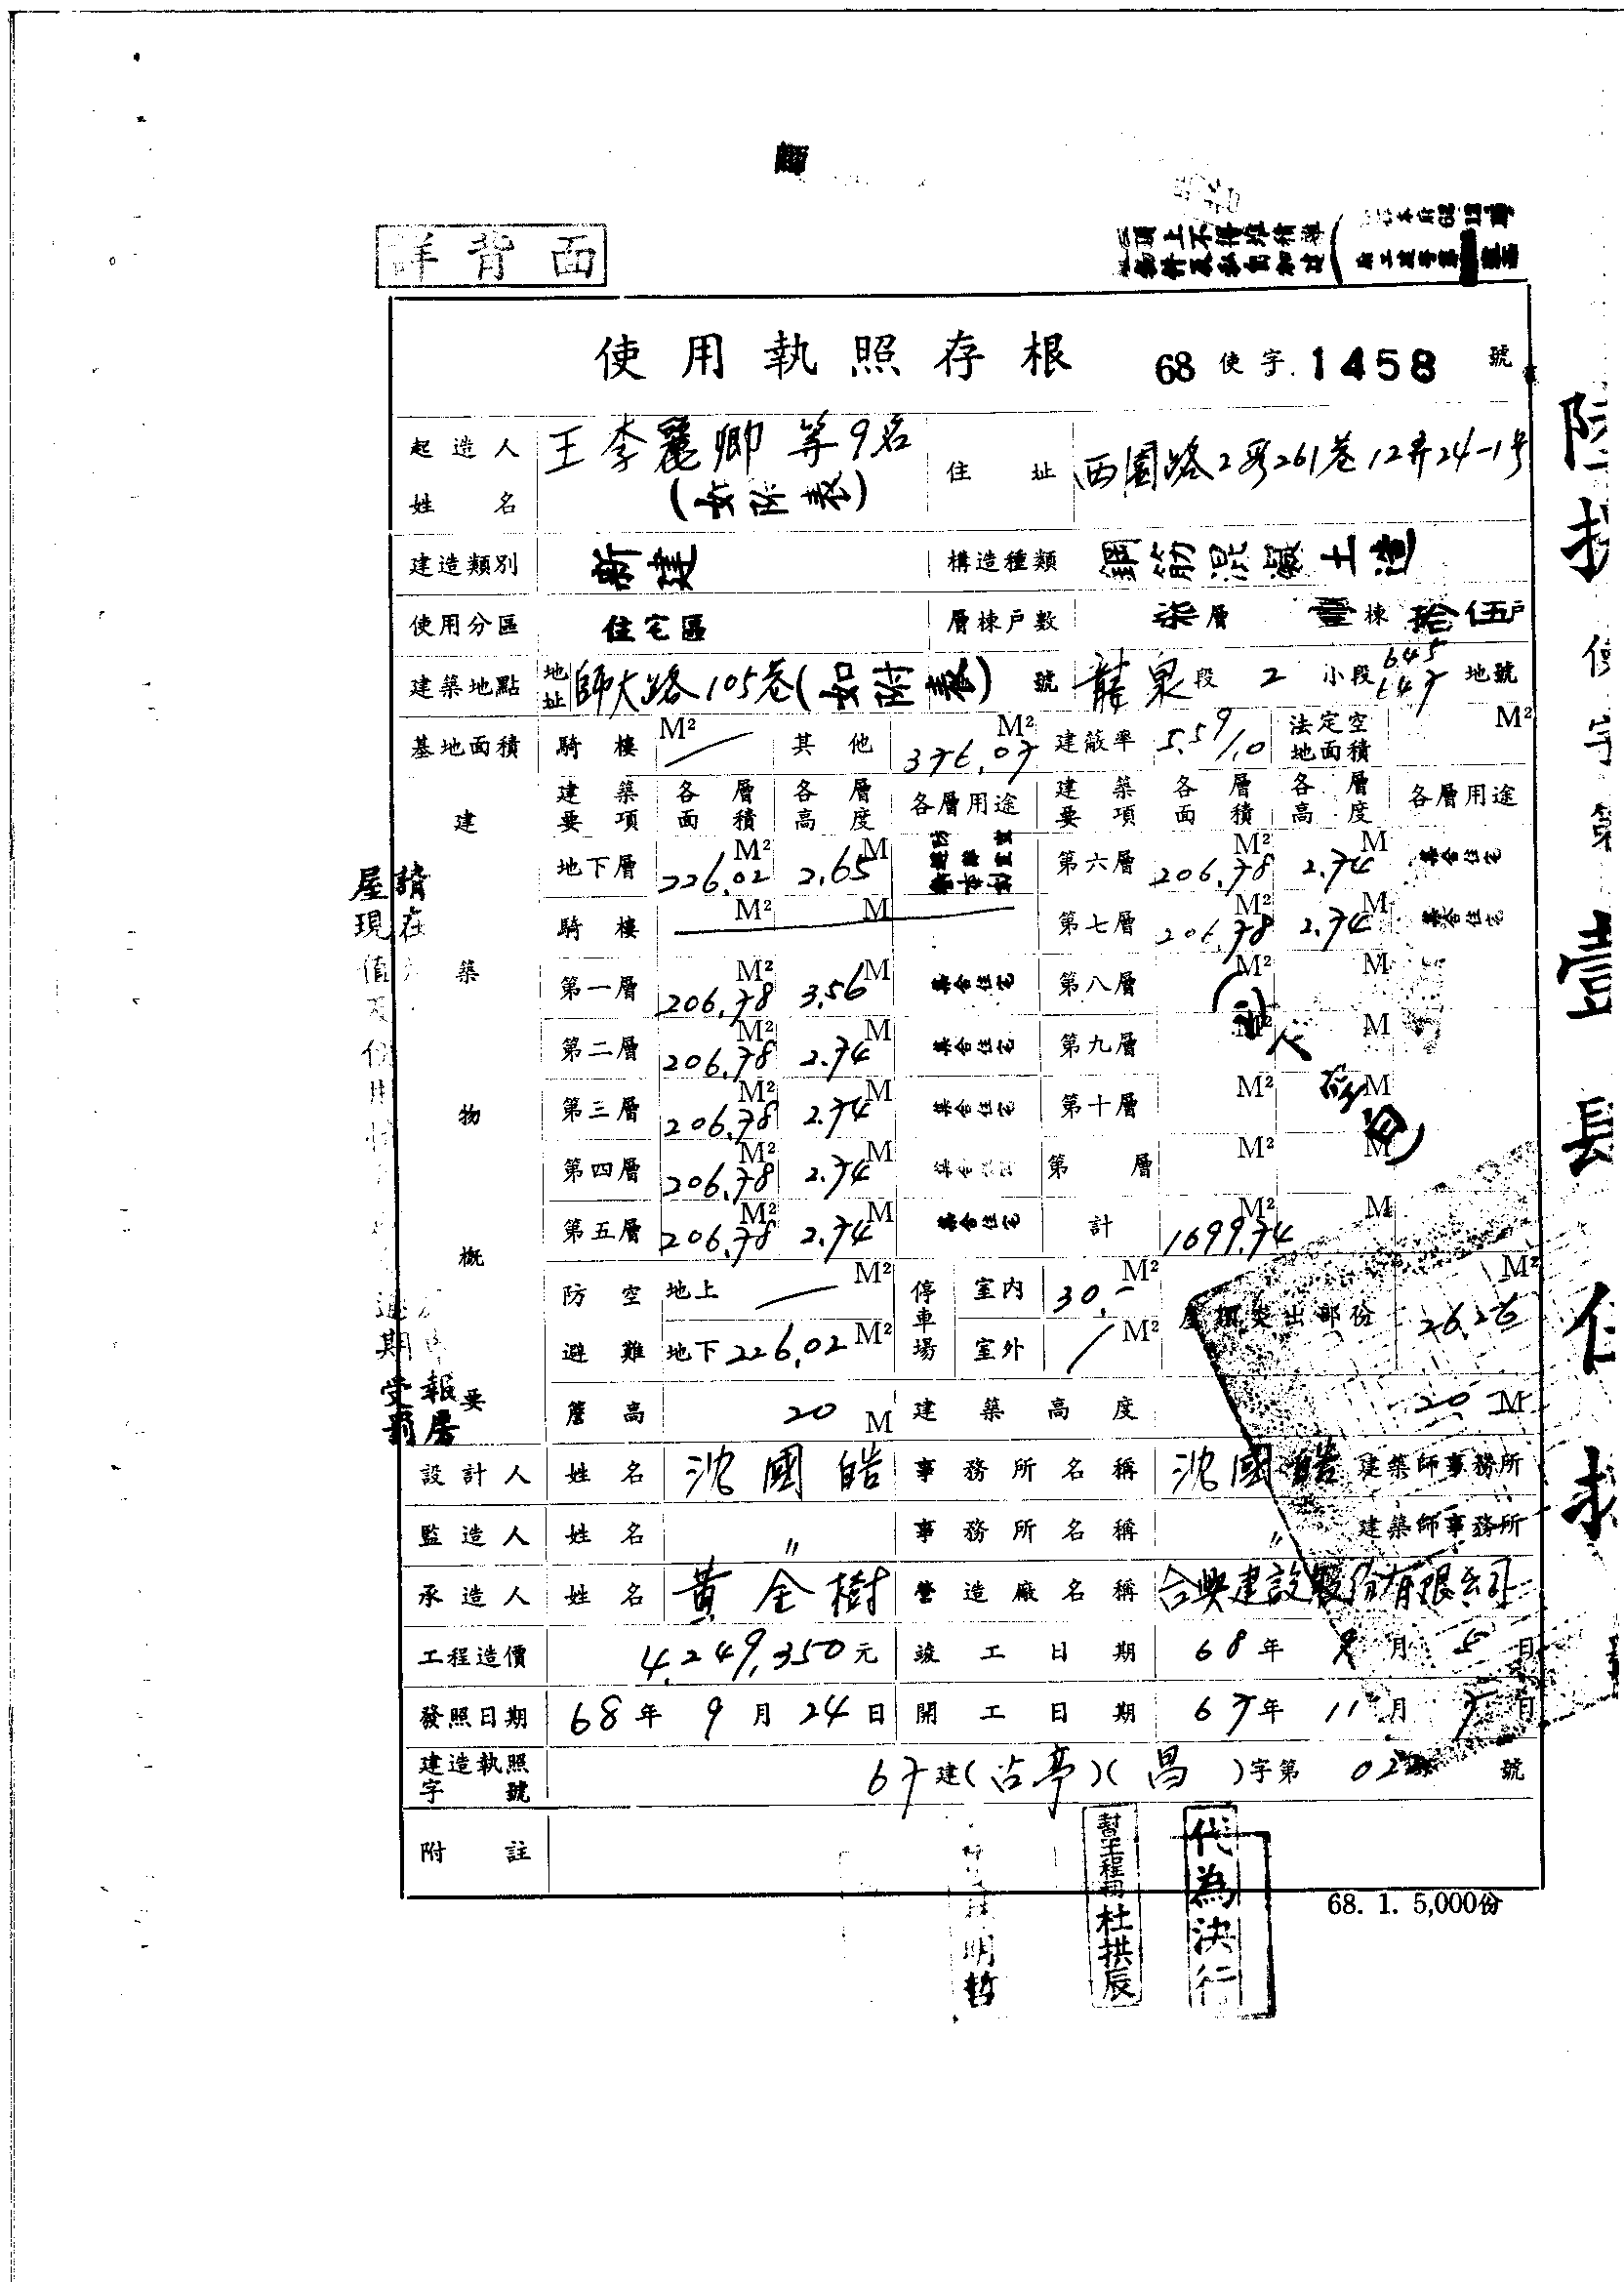 詳背面
使用執照存根 68 使字 1458 號
起造人姓名 王李麗卿 等9名 (如附表) 住址 西園路2段261巷12弄24-1號
建造類別 新建 構造種類 鋼筋混凝土造
使用分區 住宅區 層棟戶數 柒層 壹棟 拾伍戶
建築地點 地址 師大路105巷(如附表) 號 龍泉段 2 小段 645 647 地號
基地面積 騎樓 M² 其他 376.07 M² 建蔽率 5.59/10 法定空地面積 M²
建築物概要
建築要項 各層面積 各層高度 各層用途 建築要項 各層面積 各層高度 各層用途
地下層 226.02 M² 2.65 M 第六層 206.78 M² 2.74 M 集合住宅
騎樓 M² M 第七層 206.78 M² 2.74 M 集合住宅
第一層 206.78 M² 3.56 M 集合住宅 第八層 M² M
第二層 206.78 M² 2.74 M 集合住宅 第九層 M² M
第三層 206.78 M² 2.74 M 集合住宅 第十層 M² M
第四層 206.78 M² 2.74 M 集合住宅 第 層 M² M
第五層 206.78 M² 2.74 M 集合住宅 計 1699.74 M² M
防空避難 地上 M² 停車場 室內 30.- M² 屋頂突出部份 26.26 M²
地下 226.02 M² 室外 M²
簷高 20 M 建築高度 20 M
設計人 姓名 沈國皓 事務所名稱 沈國皓 建築師事務所
監造人 姓名 〃 事務所名稱 〃 建築師事務所
承造人 姓名 黃全樹 營造廠名稱 合興建設股份有限公司
工程造價 4,249,350元 竣工日期 68年 9月 5日
發照日期 68年 9月 24日 開工日期 67年 11月 7日
建造執照字號 67建(古亭)(昌)字第 號
附註
68. 1. 5,000份
明哲
杜拱辰
代為決行